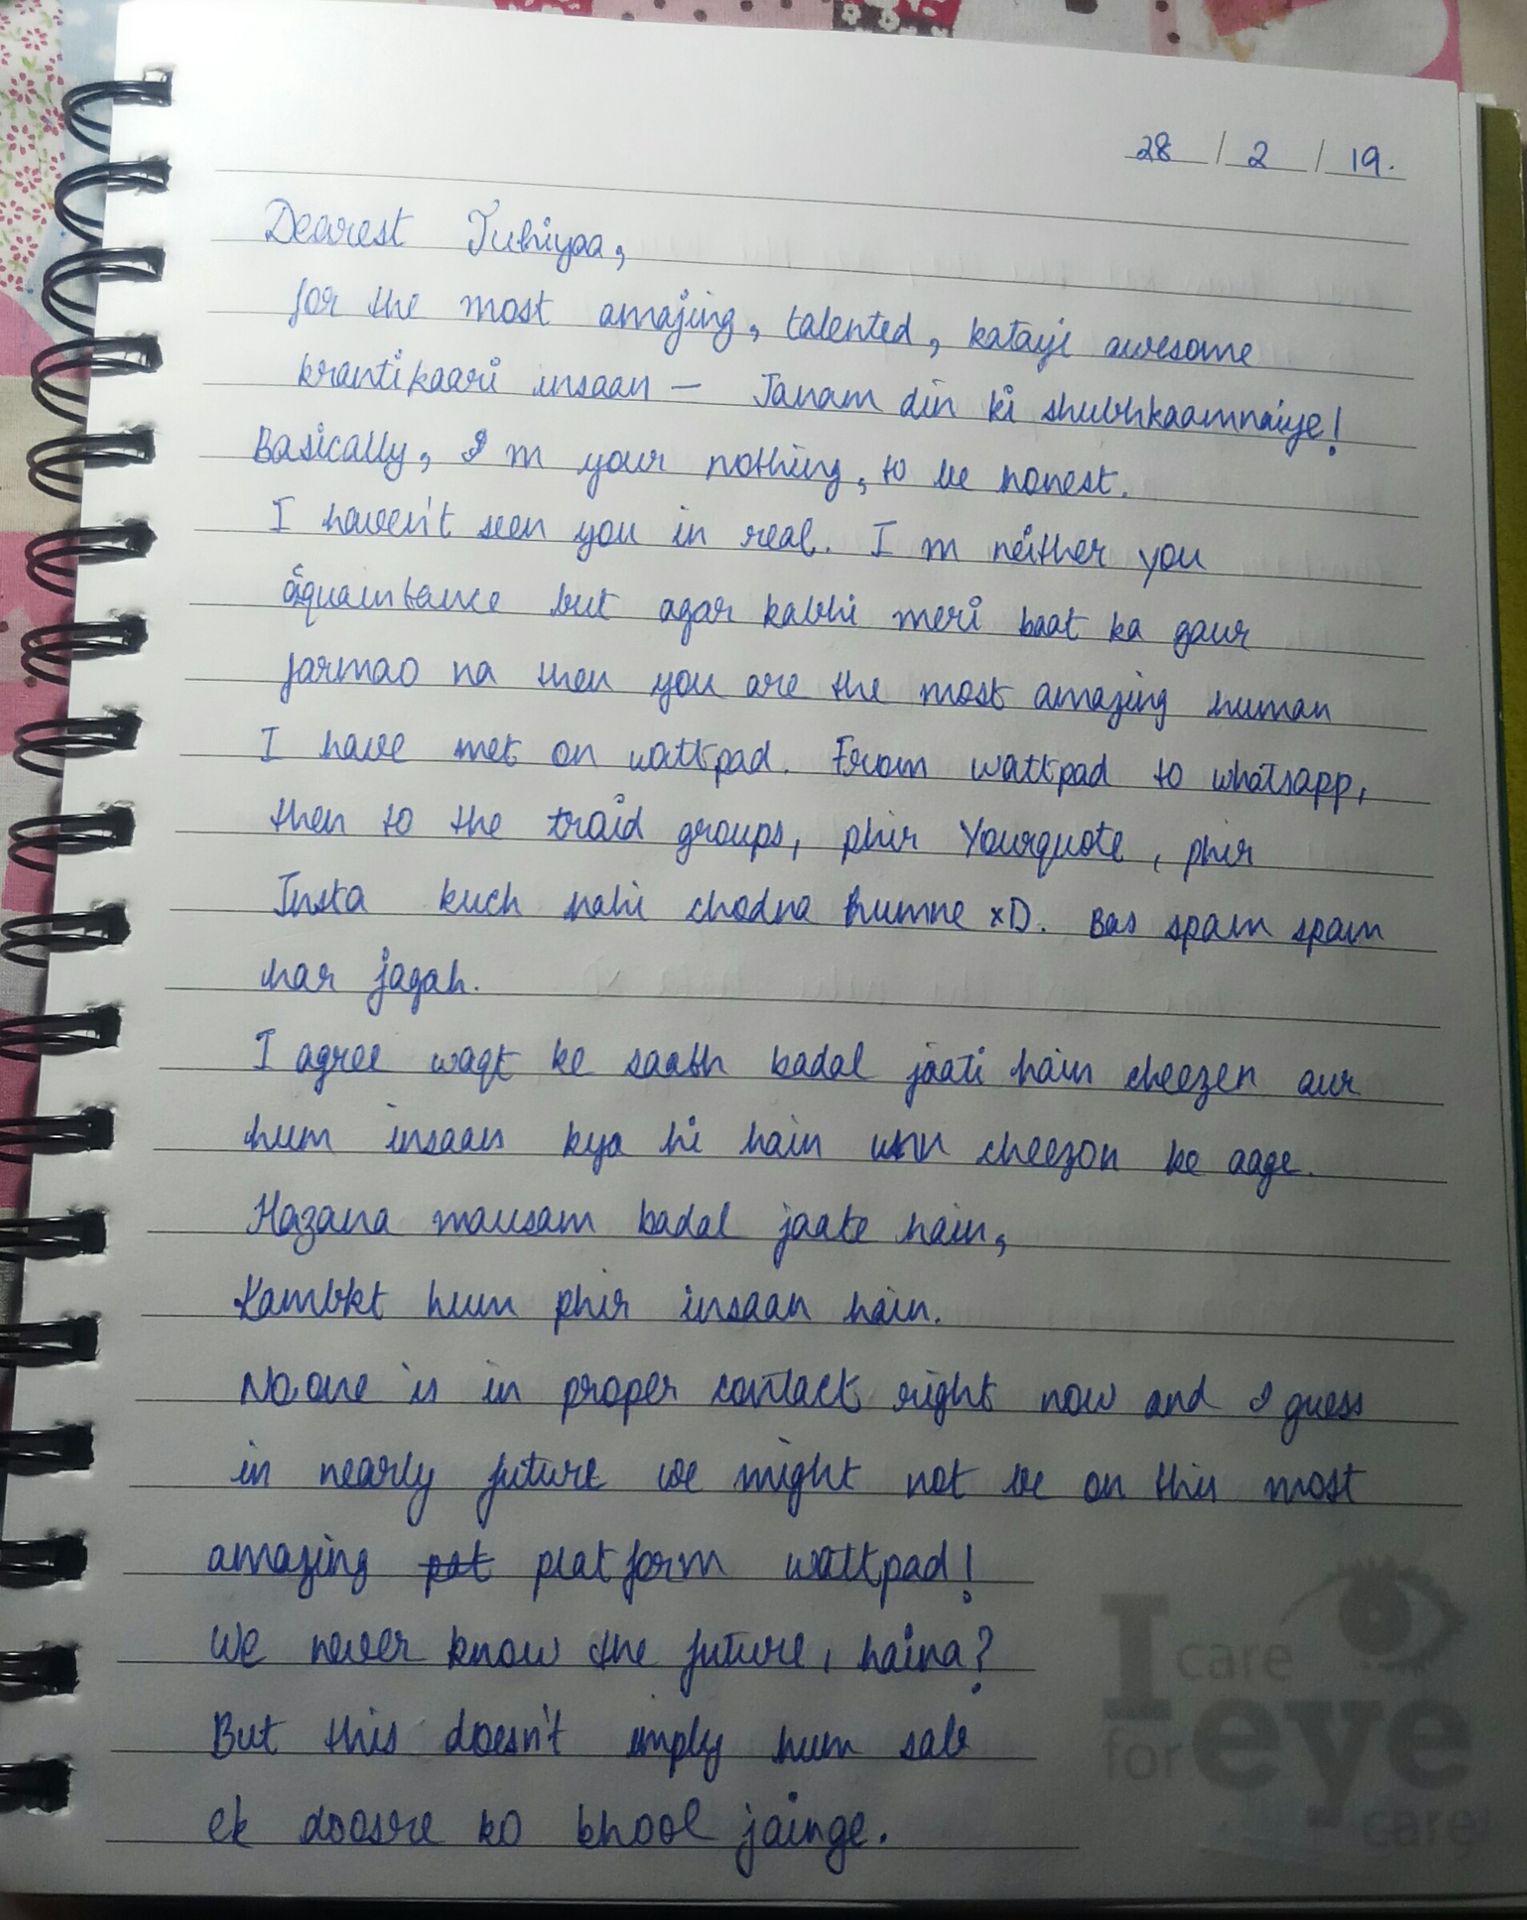 28 / 2 / 19.
Dearest Juhiyaa,
for the most amajing, talented, katayi awesome
krantikaari insaan — Janam din ki shubhkaamnaiye!
Basically, I m your nothing, to be honest.
I haven't seen you in real. I m neither you
aquaintance but agar kabhi meri baat ka gaur
farmao na then you are the most amazing human
I have met on wattpad. From wattpad to whatsapp,
then to the traid groups, phir Yourquote, phir
Insta kuch nahi chodna humne xD. Bas spam spam
har jagah.
I agree waqt ke saath badal jaati hain cheezen aur
hum insaan kya hi hain unn cheezon ke aage.
Hazana mausam badal jaate hain,
Kambkt hum phir insaan hain.
No one is in proper contact right now and I guess
in nearly future we might not be on this most
amazing pat platform wattpad!
We never know the future, haina?
But this doesn't imply hum sab
ek doosre ko bhool jainge.
I care
for eye
care